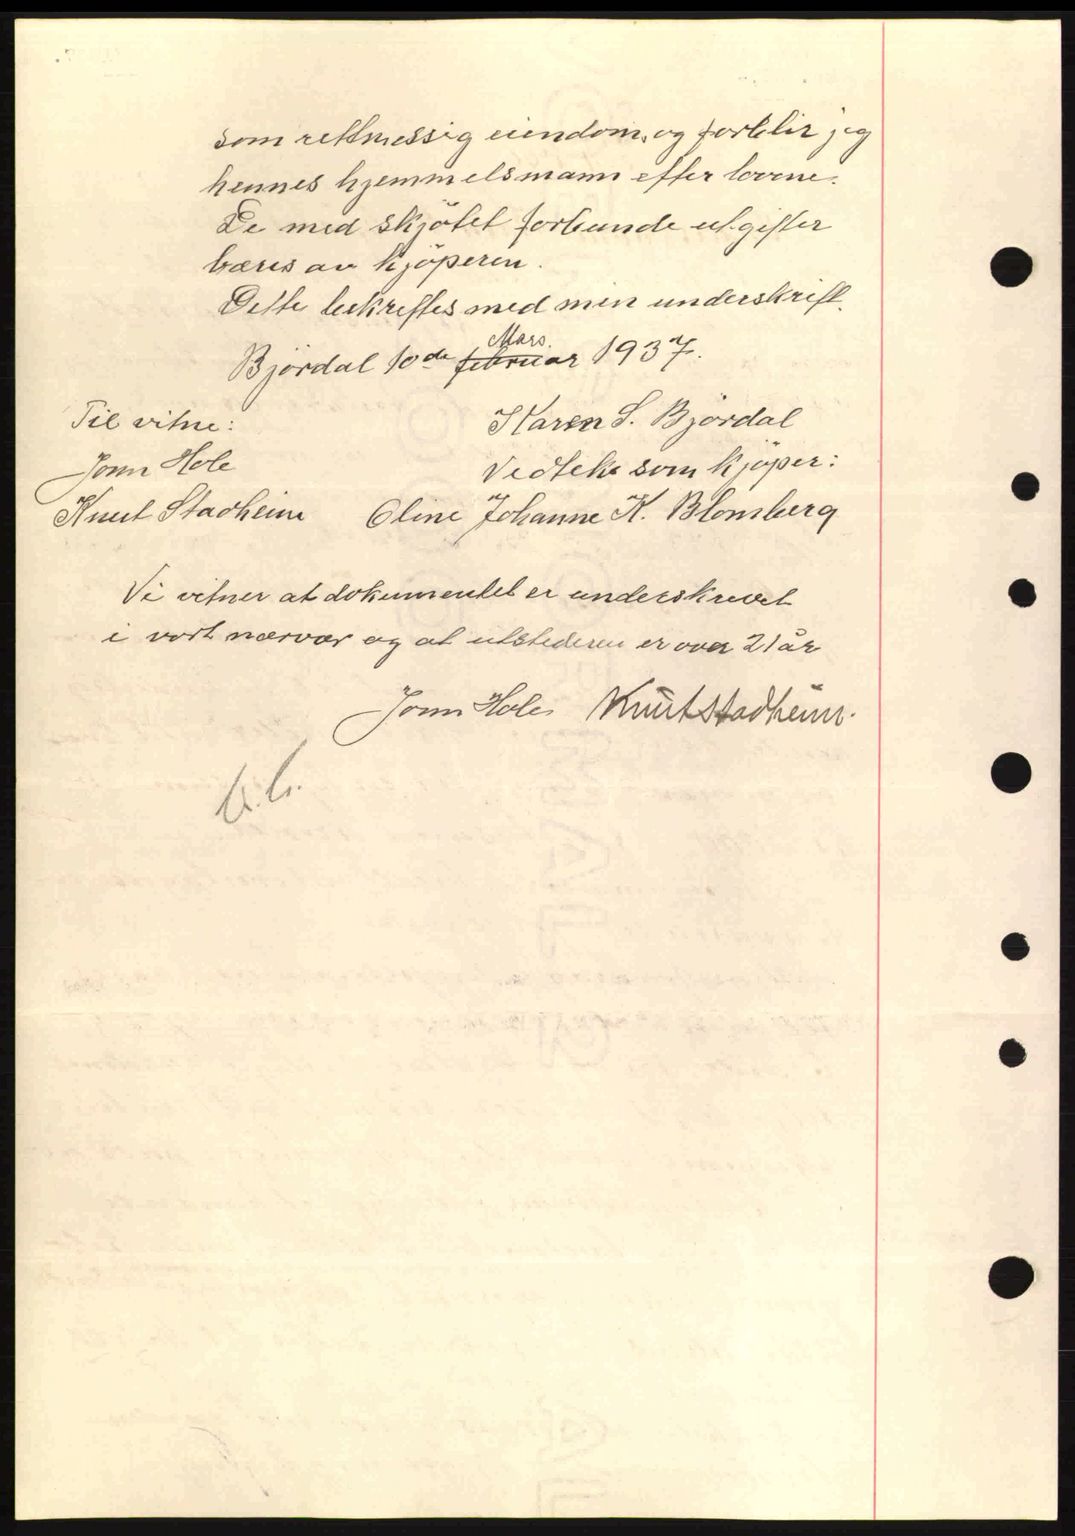 som rettmessig eiendom, og forblir jeg
hennes hjemmelsmann efter lovene.
De med skjötet forbunde utgifter
bæres av kjöperen.
Dette bekreftes med min underskrift.
Mars.
Björdal 10de februar 1937.
Til vitne:
Karen S. Björdal
Jonn Hole
Vedteke som kjöper:
Knut Stadheim
Oline Johanne K. Blomberg
Vi vitner at dokumentet er underskrevet
i vort nærvær og at utstederen er over 21 år
Jonn Hole Knut Stadheim.